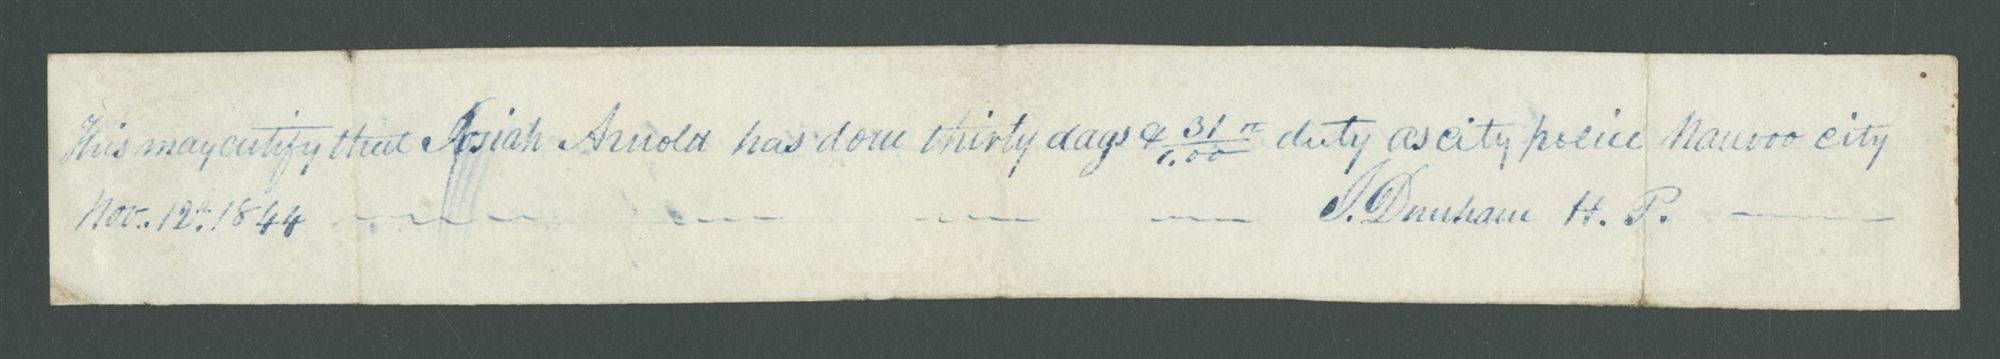 This may certify that Josiah Arnold has done thirty days & 31/1.00 duty as city police Nauvoo city
Nov. 12th. 1844 J. Dunham H. P.